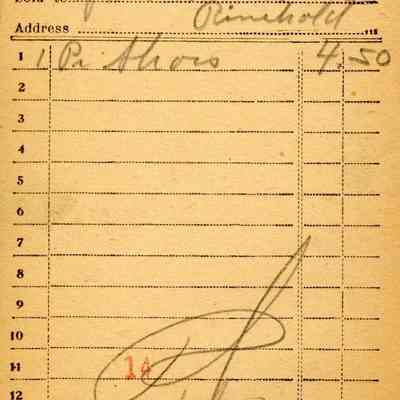 Sold to
Rinehold
Address
1 1 Pr Shoes 4.50
2
3
4
5
6
7
8
9
10
11 14
12